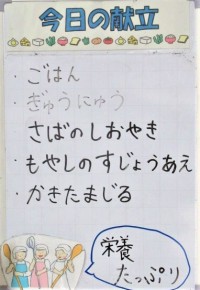 今日の献立
・ごはん
・ぎゅうにゅう
・さばのしおやき
・もやしのすじょうあえ
・かきたまじる
栄養
たっぷり